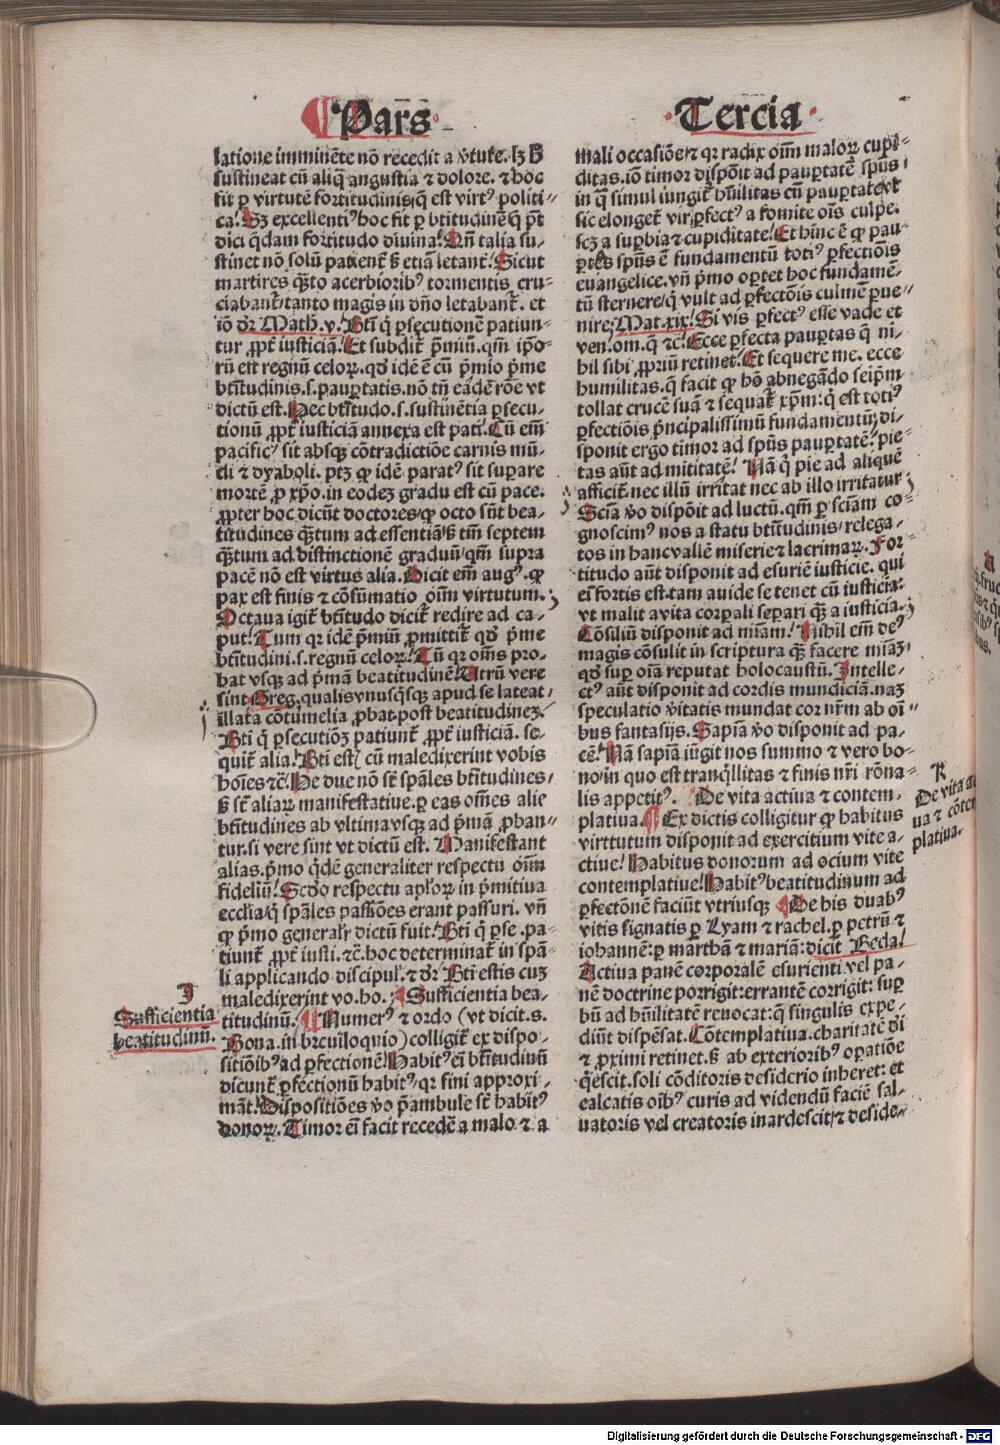 Pars̄
latione imminēte nō recedit a v̓tute. lꝫ ƀ
sustineat cū aliq̄ angustia ⁊ dolore. ⁊ hoc
fit ꝑ virtutē fortitudinis, q̄ est virt⁹ politi-
ca. Sꝫ excellenti⁹ hoc fit ꝑ btitudinē q̄ pōt
dici q̄dam fortitudo diuina. Nā talia su-
stinet nō solū patient̄ ß etiā letant̄. Sicut
martires q̄ꝫto acerbiorib⁹ tormentis cru-
ciabant̄ / tanto magis in dn̄o letabant̄. et
iō dr̄ Math. v. Bti q̄ ꝑsecutionē patiun-
tur ꝓpt̄ iusticiā. Et subdit̄ p̄miū. qm̄ ipo-
rū est regnū celoꝝ. qd idē ē cū p̄mio p̄me
btitudinis. s. paupertatis. nō tn̄ eadē rōe vt
dictū est. Nec btitudo. s. sustinētia ꝑsecu-
tionū ꝓpt̄ iusticiā annexa est pati. Cū em̄
pacific⁹ sit absqꝫ cōtradictiōe carnis mū-
di ⁊ dyaboli. ptꝫ ꝙ idē parat⁹ sit suꝑare
mortē ꝓ xp̄o. in eodeꝫ gradu est cū pace.
ꝓpter hoc dicūt doctores / ꝙ octo sūt bea-
titudines q̄ꝫtum ad essentiā / ß tm̄ septem
q̄ꝫtum ad distinctionē graduū / qm̄ supra
pacē nō est virtus alia. Dicit em̄ aug⁹. ꝙ
pax est finis ⁊ cōsūmatio oim̄ virtutum.
Octaua igit̄ btitudo dicit̄ redire ad ca-
put. Tum qꝛ idē p̄miū ꝓmittit̄ qd p̄me
btitudini. s. regnū celoꝝ. Tū qꝛ om̄s pro-
bat vsqꝫ ad p̄mā beatitudinē. Vtrū vere
sint Greg. qualis vnusq̄sqꝫ apud se lateat
illata cōtumelia ꝓbat. post beatitudineꝫ.
Bti q̄ ꝑsecutiōꝫ patiunt̄ ꝓpt̄ iusticiā. se-
quit̄ alia. Bti esti⁊ cū maledixerint vobis
hoīes ⁊c̄. He due nō st̄ sp̄ales btitudines /
ß st̄ aliaꝝ manifestatiue. ꝑ eas om̄es alie
btitudines ab vltima vsqꝫ ad p̄mā ꝓban-
tur. si vere sint vt dictū est. Manifestant
alias. p̄mo q̄dē generaliter respectu oim̄
fideliū. Scd̄o respectu aploꝝ in p̄mitiua
ecclia / q̄ sp̄ales passiōes erant passuri. vn̄
ꝙ p̄mo generalr̄ dictū fuit. Bti q̄ ꝑse. pa-
tiunt̄ ꝓpt̄ iusti. ⁊c̄. hoc determinat̄ in spā-
li applicando discipul̄. ⁊ dr̄ Bti estis cuꝫ
maledixerint vo. ho. Sufficientia bea-
titudinū. Numer⁹ ⁊ ordo (vt dicit. s.
Bona. in breuiloquio) colligit̄ ex dispo-
sitiōib⁹ ad ꝑfectionē. Habit⁹ ei btitudinū
dicunt̄ ꝑfectionū habit⁹ / qꝛ fini approxi-
māt. Dispositiōes v̓o p̄ambule st̄ habit⁹
donoꝝ. Timor ei facit recedē a malo ⁊ a
I
Sufficientia
beatitudinū.
Tercia
mali occasiōe / ⁊ qꝛ radix oim̄ maloꝝ cupi-
ditas. iō timor dispōit ad pauꝑtatē sp̄us
in q̄ simul iungit̄ hūilitas cū pauꝑtate / vt
sic elonget̄ vir ꝑfect⁹ a fomite oīs culpe.
scꝫ a suꝑbia ⁊ cupiditate. Et hinc ē ꝙ pau-
ꝑtas sp̄us ē fundamentū toti⁹ ꝑfectiōis
euangelice. vn̄ p̄mo oꝑtet hoc fundamē-
tū sternere / q̄ vult ad ꝑfectōis culmē ꝑue-
nire. Mat. xix. Si vis ꝑfect⁹ esse vade et
ven. om. q̄ ⁊c̄. Ecce ꝑfecta pauꝑtas q̄ ni-
hil sibi ꝓpriū retinet. Et sequere me. ecce
humilitas. q̄ facit ꝙ hō abnegādo seip̄m
tollat crucē suā ⁊ sequat̄ xp̄m: q̄ est toti⁹
ꝑfectiōis p̄ncipalissimū fundamentū / di-
sponit ergo timor ad sp̄us pauꝑtatē. pie-
tas aūt ad mititatē. Nā q̄ pie ad aliquē
afficit̄ nec illū irritat nec ab illo irritatur
Sciā v̓o dispōit ad luctū. qm̄ ꝑ sciam co-
gnoscim⁹ nos a statu btitudinis / relega-
tos in hanc vallē miserie ⁊ lacrimaꝝ. For-
titudo aūt disponit ad esuriē iusticie. qui
ei fortis est. tam auide se tenet cū iusticia:
vt malit a vita corꝑali seꝑari q̄ꝫ a iusticia.
Cōsiliū disponit ad mīam. Nihil em̄ de⁹
magis cōsulit in scriptura q̄ꝫ facere mīaꝫ
qd suꝑ oīa reputat holocaustū. Intelle-
ct⁹ aūt disponit ad cordis mundiciā. naꝫ
speculatio v̓itatis mundat cor nr̄m ab oī-
bus fantasijs. Sapīa v̓o disponit ad pa-
cē. Nā sapīa iūgit nos summo ⁊ vero bo-
no / in quo est tranq̄llitas ⁊ finis nr̄i rōna-
lis appetit⁹. De vita actiua ⁊ contem-
platiua. Ex dictis colligitur ꝙ habitus
virttutum disponit ad exercitium vite a-
ctiue. Habitus donorum ad ocium vite
contemplatiue. Habit⁹ beatitudinum ad
ꝑfectōnē faciūt vtriusqꝫ De his duab⁹
vitis signatis ꝑ Lyam ⁊ rachel. ꝑ petrū ⁊
iohannē: ꝑ marthā ⁊ mariā: dicit Beda.
Actiua panē corporalē esurienti vel pa-
nē doctrine porrigit: errantē corrigit: suꝑ
bū ad hūilitatē reuocat: q̄ singulis expe-
diūt dispēsat. Cōtemplatiua. charitatē dī
⁊ proximi retinet. ß ab exteriorib⁹ oꝑatiōe
q̄escit. soli cōditoris desiderio inheret: et
calcatis oīb⁹ curis ad videndū faciē sal-
uatoris vel creatoris inardescit / ⁊ deside-
K
De vita a
ua ⁊ cōtem
platiua.
Digitalisierung gefördert durch die Deutsche Forschungsgemeinschaft - DFG